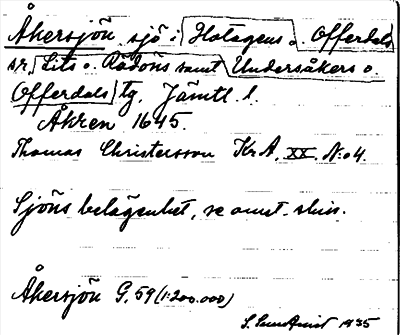 Åkersjön, sjö i Hotagens o. Offerdals
sr, Lits o. Rödöns samt Undersåkers o.
Offerdals tg, Jämtl. l.
Åkren 1645.
Thomas Christersson Kr A, XX. N:o 4.
Sjöns belägenhet, se annt. skiss.
Åkersjön G. 59 (1:200.000)
1935